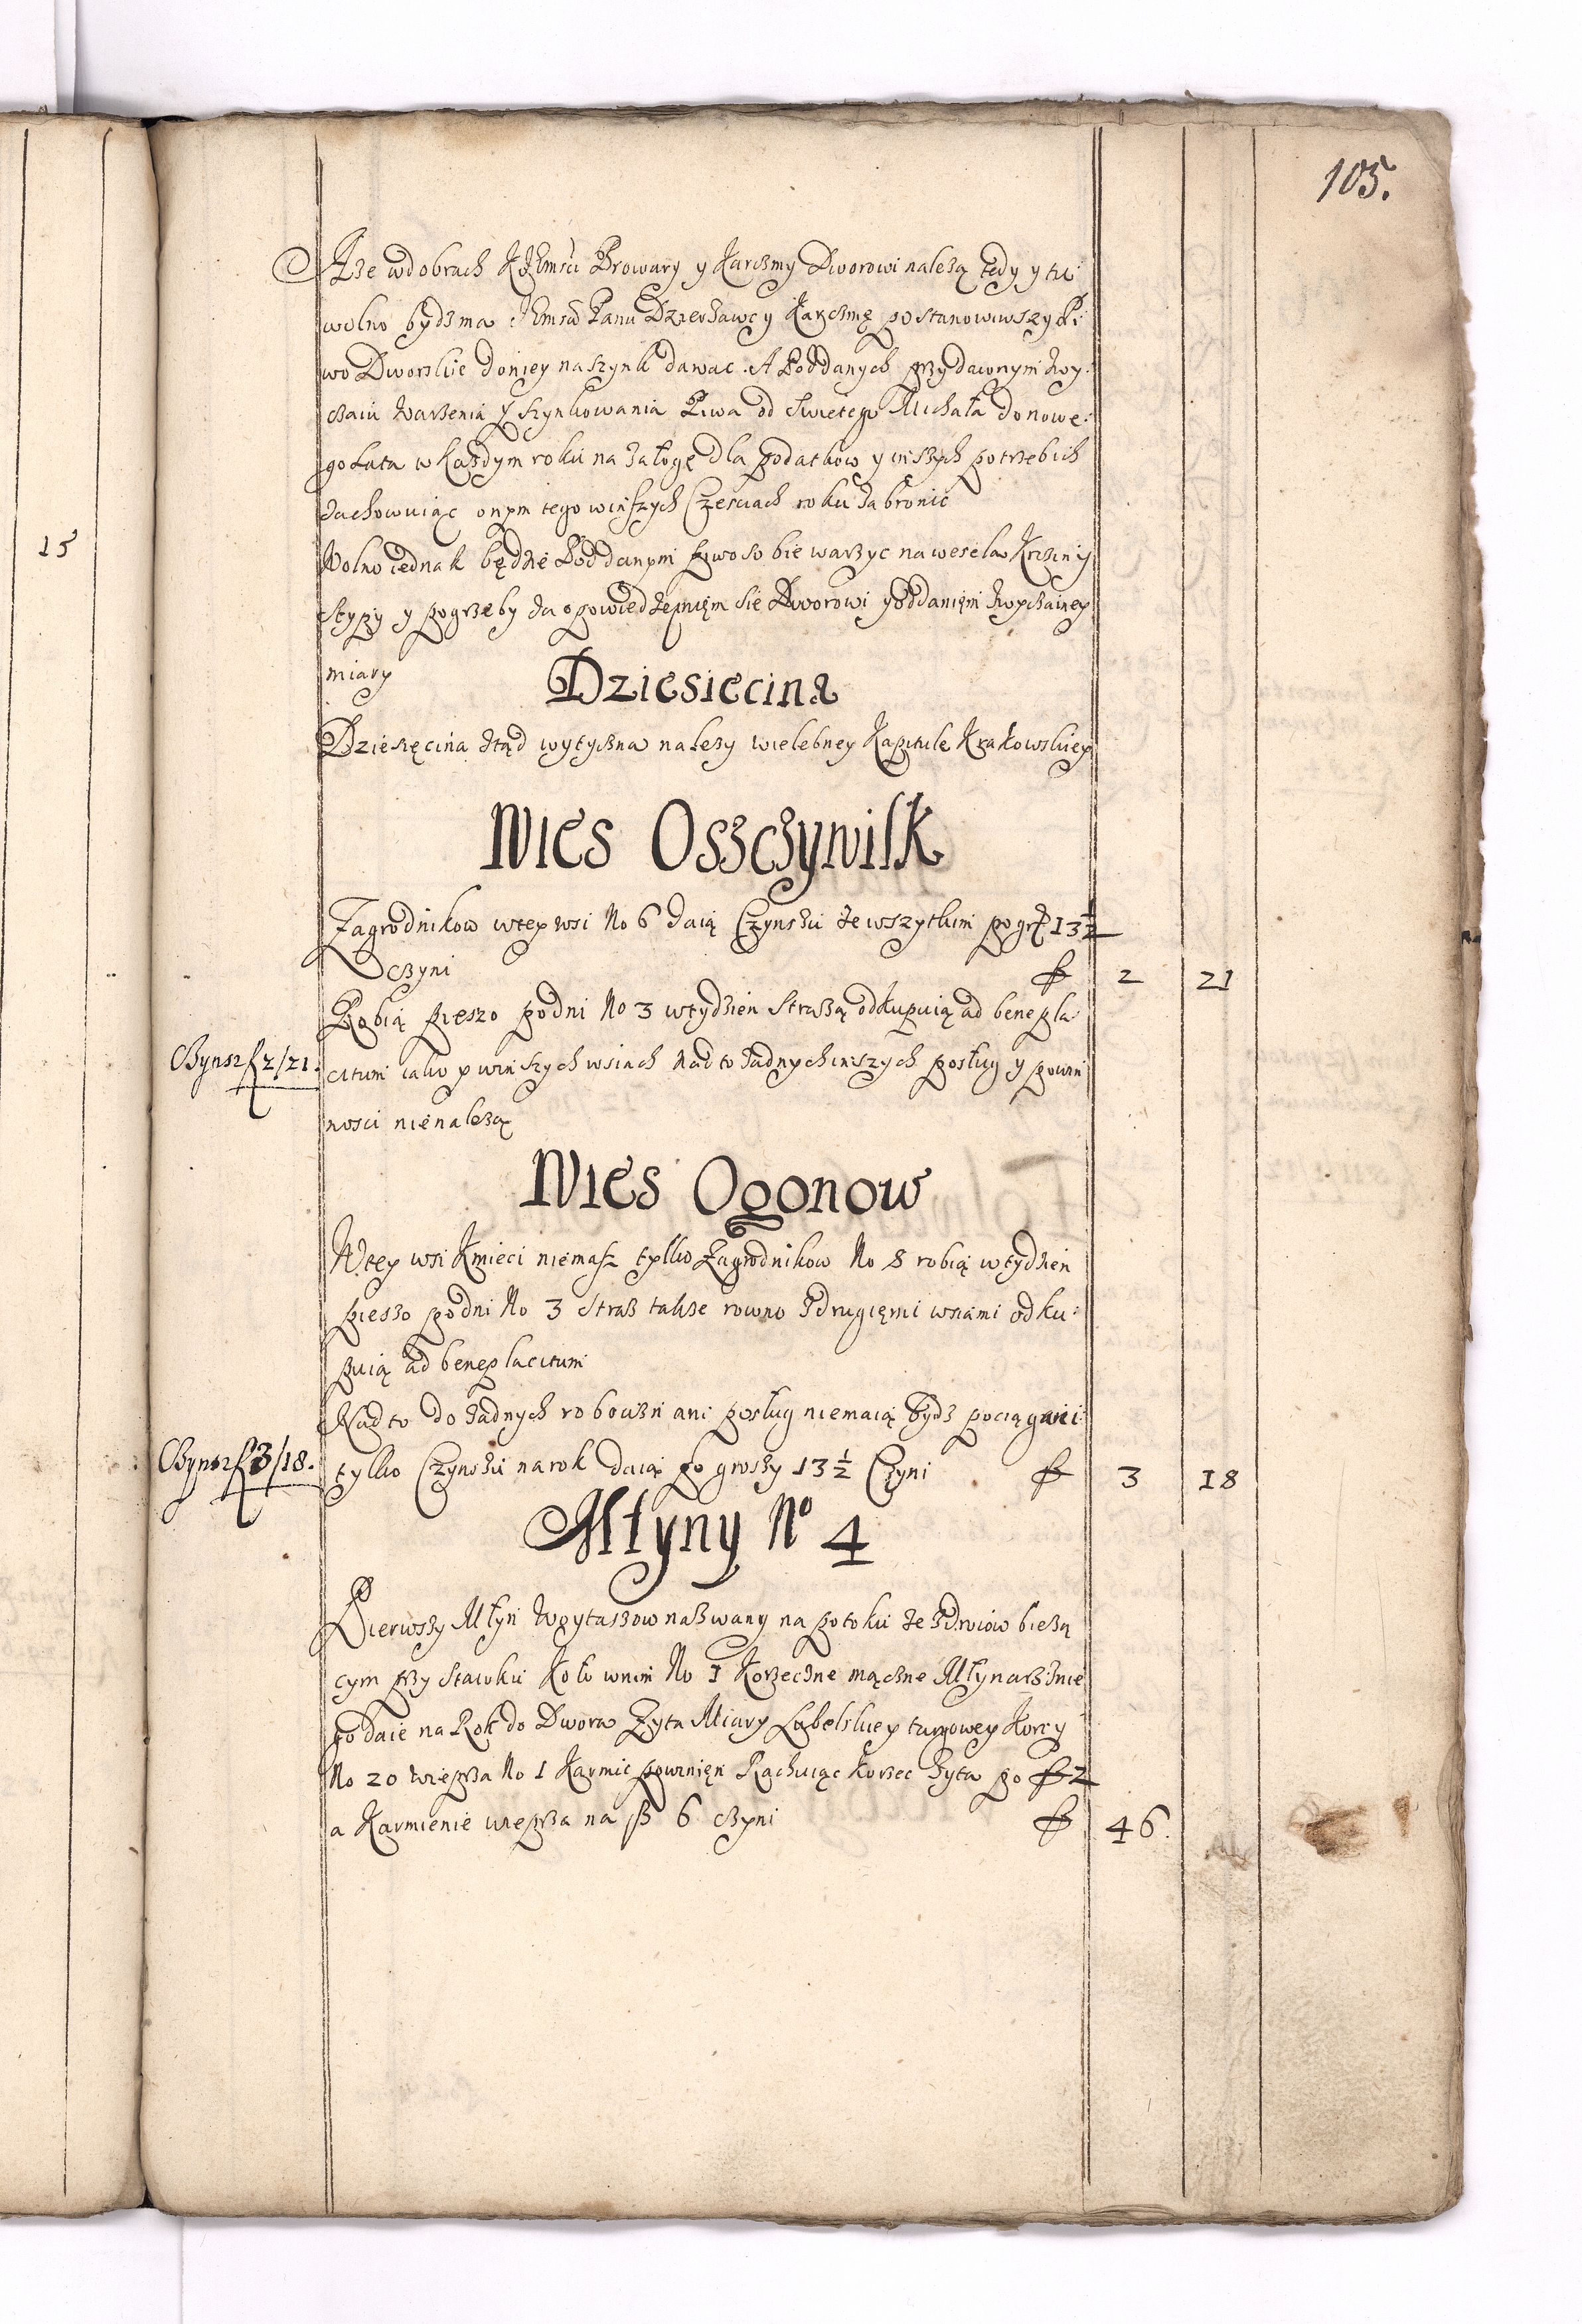 105.
15
A ze w dobrach KJEmści Browary y Karczmy Dworowi należą tedy y tu
wolno bydz ma JEmśći Panu Dzierżawcy Karczmę postanowiwszy Pi:
wo Dworskie do niey na szynk dawac. A Poddanych przy dawnym zwy:
czaiu warzenia y szynkowania Piwa od Swietego Michała do nowe:
go Lata w każdym roku na załogę dla podatkow y inszych potrzeb ich
zachowuiąc onym tego w inszych Czesciach roku zabronic
Wolno iednak będzie Poddanym piwo sobie warzyc na wesela Krzciny
Stypy y pogrzeby za opowiedzeniem sie Dworowi y oddaniem zwyczainey
miary
Dziesiecina
Dziesięcina ztąd wytyczna należy wielebney Kapitule Krakowskiey
Wies Oszczywilk
Zagrodnikow w tey wsi No 6 daią Czynszu ze wszytkim po gr 13 1/2
czyni f 2 21
Robią pieszo po dni No 3 w tydzien Strażą odkupuią ad benepla
Czynsz f 2/21.
citum iako y w inszych wsiach Nad to żadnych inszych posług y powin
nosci nie należą
Wies Ogonow
W tey wsi Kmieci niemasz tylko Zagrodnikow No 8 robią w tydzien
pieszo po dni No 3 Straż także rowno z drugięmi wsiami odku:
puią ad beneplacitum
Nad to do żadnych robocizn ani posług niemaią bydz pociągani:
Czynsz f 3/18.
tylko Czynszu na rok daią po groszy 13 1/2 Czyni f 3 18
Młyny No 4
Pierwszy Młyn Woytaszow nazwany na potoku ze zdroiow bieżą
cym przy Stawku Koło w nim No 1 Korzeczne mączne Młynarz z nie
go daie na Rok do Dwora Żyta Miary Lubelskiey targowey Korcy
No 20 wieprza No 1 Karmic powinięn Rachuiąc korzec żyta po f 2
a Karmienie wieprza na f 6 czyni f 46.